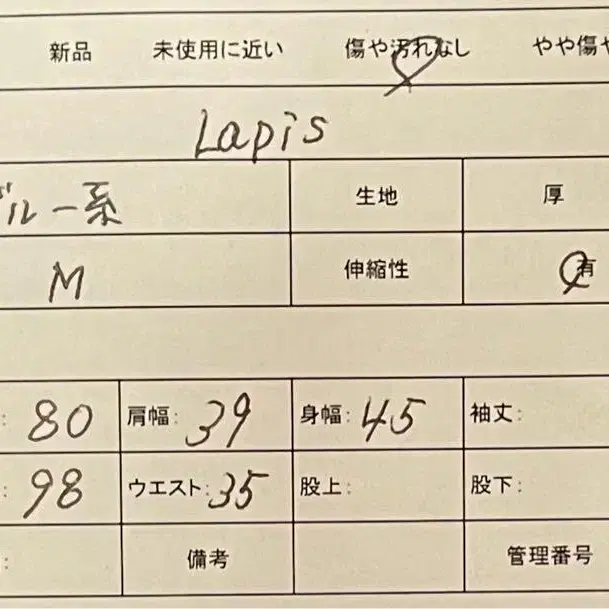 新品 未使用に近い 傷や汚れなし やや傷や
Lapis
ブルー系 生地 厚
M 伸縮性 有
: 80 肩幅: 39 身幅: 45 袖丈:
: 98 ウエスト: 35 股上: 股下:
: 備考 管理番号